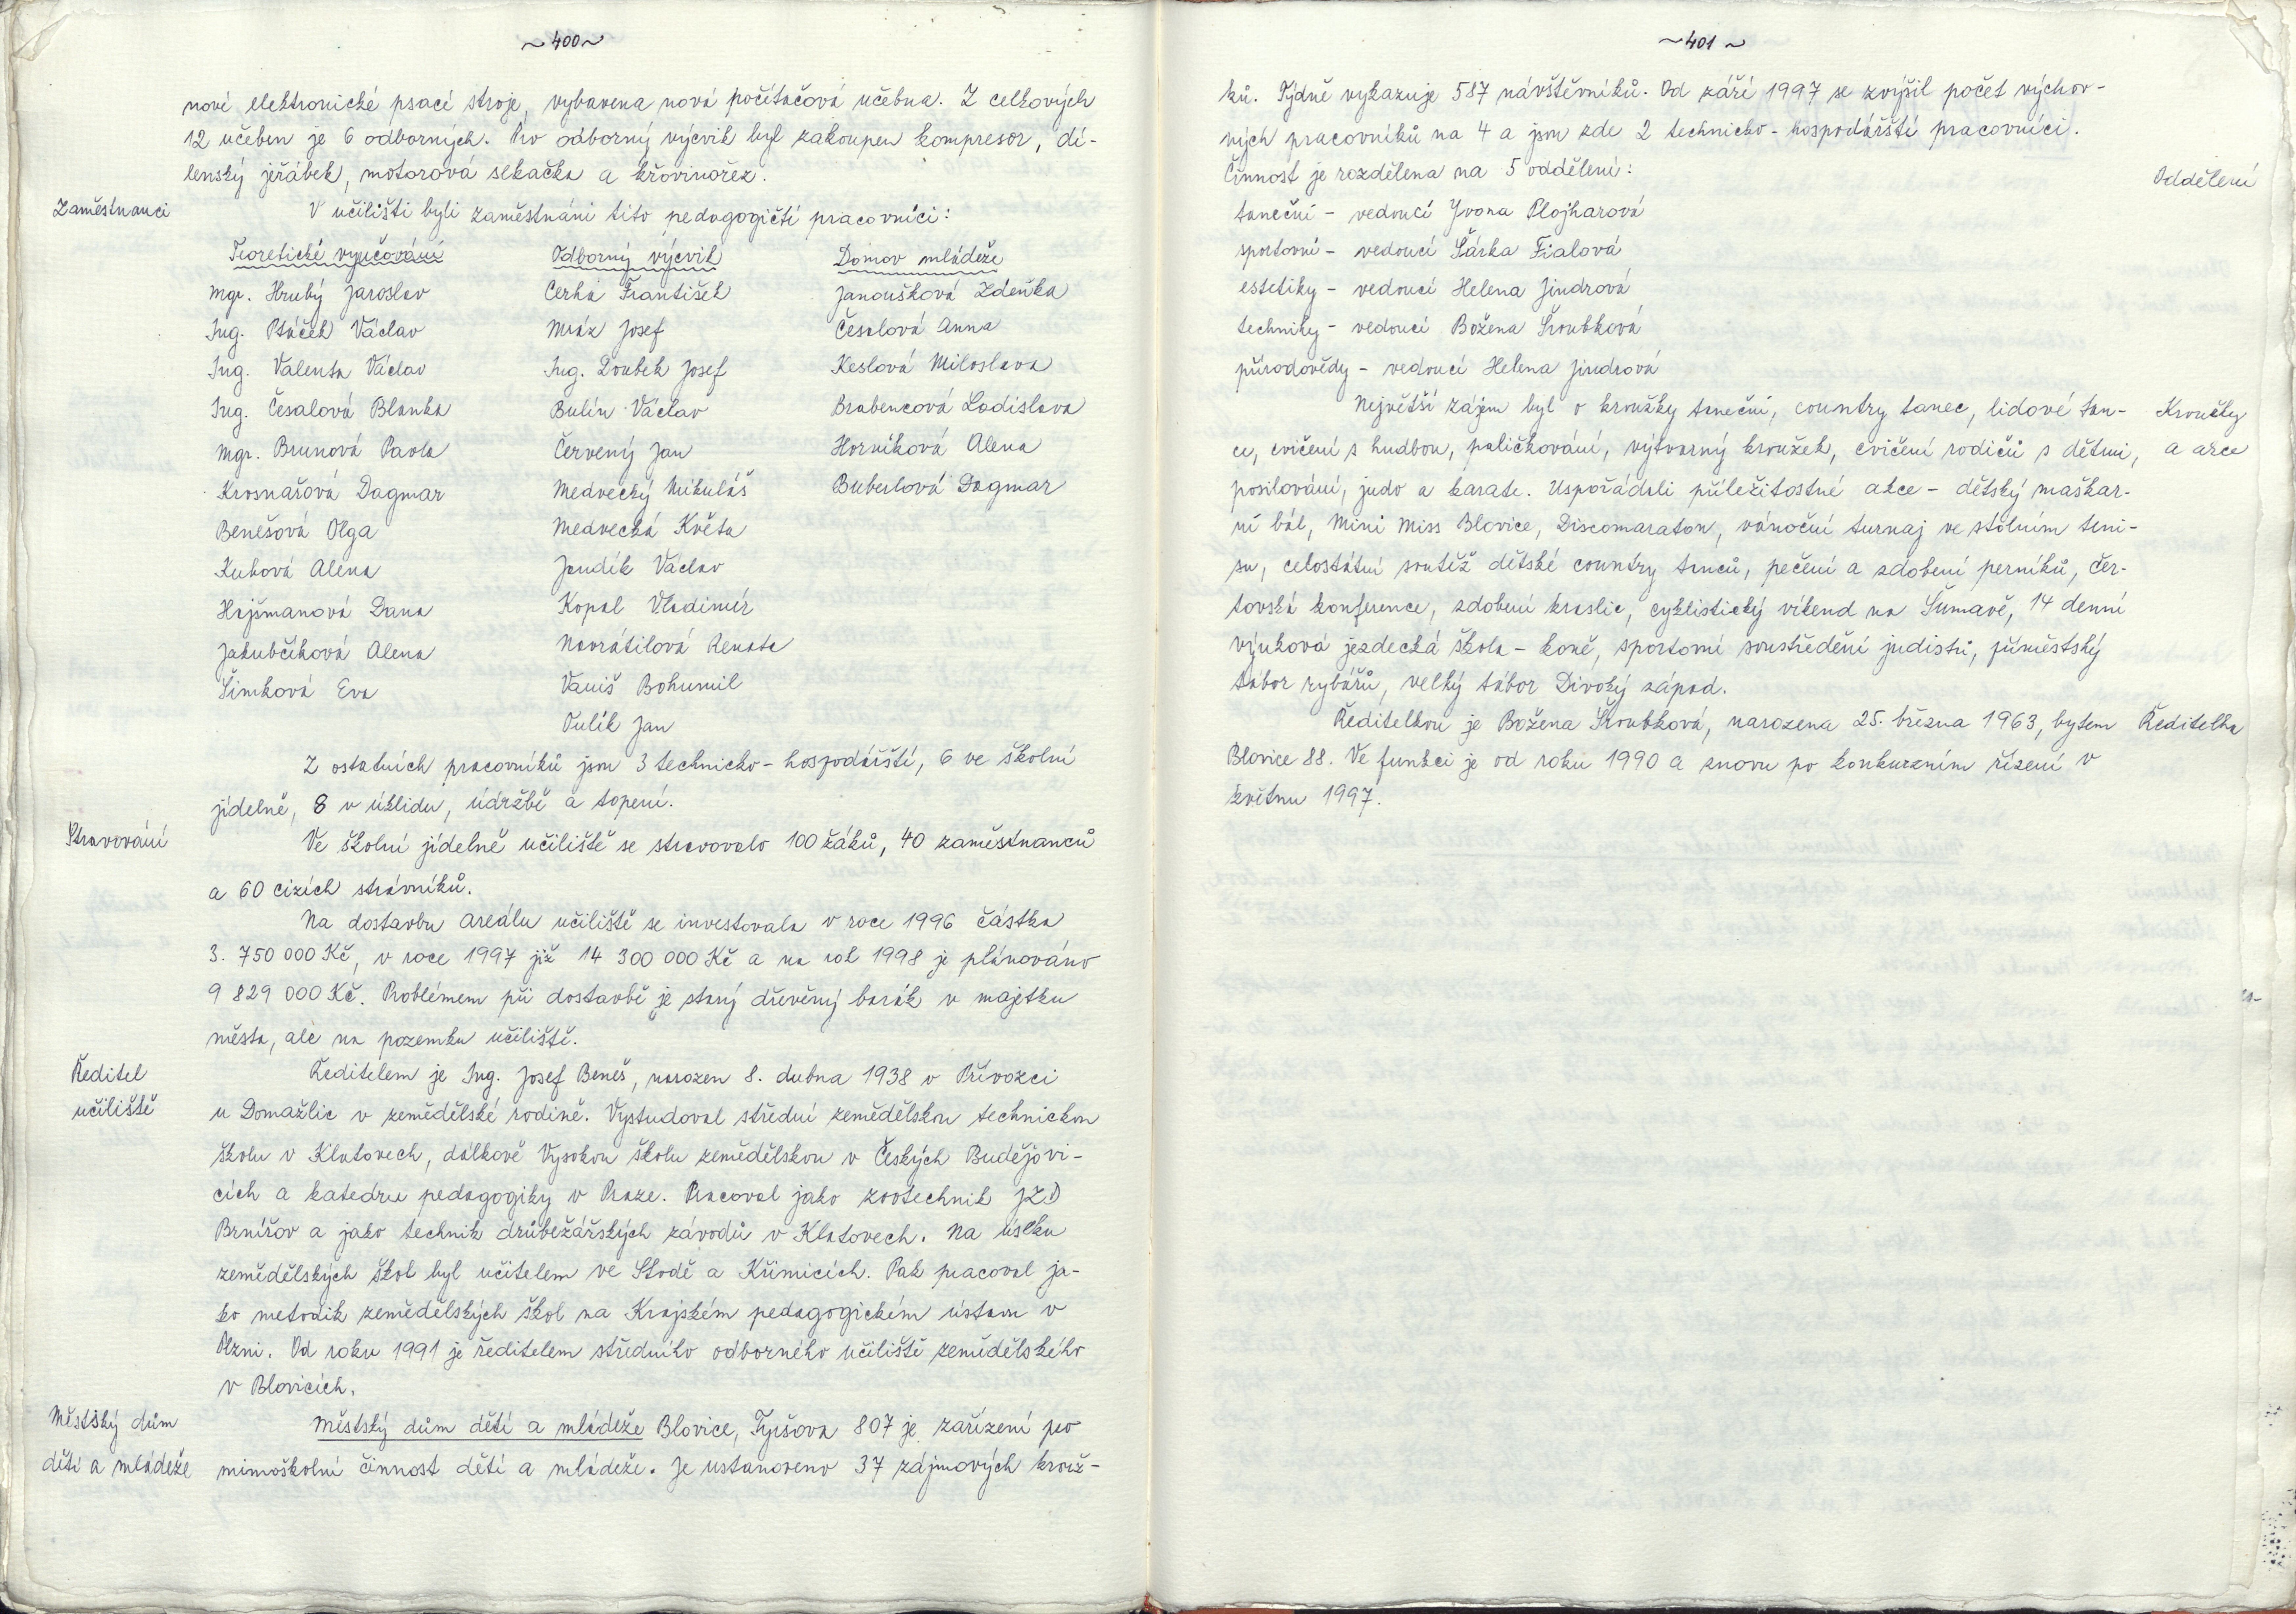 ~ 400 ~
nové elektronické psací stroje, vybavena nová počítačová učebna. Z celkových
12 učeben je 6 odborných. Pro odborný výcvik byl zakoupen kompresor, dí-
lenský jeřábek, motorová sekačka a křovinořez.
Zaměstnanci
V učilišti byli zaměstnáni tito pedagogičtí pracovníci:
Teoretické vyučování Odborný výcvik Domov mládeže
Mgr. Hrubý Jaroslav Cerha František Janoušková Zdeňka
Ing. Ptáček Václav Mráz Josef Česalová Anna
Ing. Valenta Václav Ing. Doubek Josef Keslová Miloslava
Ing. Česalová Blanka Bulín Václav Brabencová Ladislava
Mgr. Brunová Pavla Červený Jan Horníková Alena
Krosnařová Dagmar Medvecký Mikuláš Buberlová Dagmar
Benešová Olga Medvecká Květa
Kubová Alena Jandík Václav
Hajšmanová Dana Kopal Vladimír
Jakubčíková Alena Navrátilová Renata
Šimková Eva Vaniš Bohumil
Tulík Jan
Z ostatních pracovníků jsou 3 technicko-hospodářští, 6 ve školní
jídelně, 8 v úklidu, údržbě a topení.
Stravování
Ve školní jídelně učiliště se stravovalo 100 žáků, 40 zaměstnanců
a 60 cizích strávníků.
Na dostavbu areálu učiliště se investovala v roce 1996 částka
3. 750 000 Kč, v roce 1997 již 14 300 000 Kč a na rok 1998 je plánováno
9 829 000 Kč. Problémem při dostavbě je starý dřevěný barák v majetku
města, ale na pozemku učiliště.
Ředitel
učiliště
Ředitelem je Ing. Josef Beneš, narozen 8. dubna 1938 v Přívozci
u Domažlic v zemědělské rodině. Vystudoval střední zemědělskou technickou
školu v Klatovech, dálkově Vysokou školu zemědělskou v Českých Budějovi-
cích a katedru pedagogiky v Praze. Pracoval jako zootechnik JZD
Brnířov a jako technik drůbežářských závodů v Klatovech. Na úseku
zemědělských škol byl učitelem ve Stodě a Křimicích. Pak pracoval ja-
ko metodik zemědělských škol na Krajském pedagogickém ústavu v
Plzni. Od roku 1991 je ředitelem středního odborného učiliště zemědělského
v Blovicích.
Městský dům
dětí a mládeže
Městský dům dětí a mládeže Blovice, Tyršova 807 je zařízení pro
mimoškolní činnost dětí a mládeže. Je ustanoveno 37 zájmových krouž-
~ 401 ~
ků. Týdně vykazuje 587 návštěvníků. Od září 1997 se zvýšil počet výchov-
ných pracovníků na 4 a jsou zde 2 technicko-hospodářští pracovníci.
Činnost je rozdělena na 5 oddělení:
Oddělení
taneční - vedoucí Yvona Plojharová
sportovní - vedoucí Šárka Fialová
estetiky - vedoucí Helena Jindrová
techniky - vedoucí Božena Šroubková
přírodovědy - vedoucí Helena Jindrová
Největší zájem byl o kroužky taneční, country tanec, lidové tan-
Kroužky
ce, cvičení s hudbou, paličkování, výtvarný kroužek, cvičení rodičů s dětmi,
a akce
posilování, judo a karate. Uspořádali příležitostné akce - dětský maškar-
ní bál, Mini Miss Blovice, Discomaraton, vánoční turnaj ve stolním teni-
su, celostátní soutěž dětské country tanců, pečení a zdobení perníků, čer-
tovská konference, zdobení kraslic, cyklistický víkend na Šumavě, 14 denní
výuková jezdecká škola - koně, sportovní soustředění judistů, příměstský
tábor rybářů, velký tábor Divoký západ.
Ředitelkou je Božena Šroubková, narozena 25. března 1963, bytem
Ředitelka
Blovice 88. Ve funkci je od roku 1990 a znovu po konkurzním řízení v
květnu 1997.